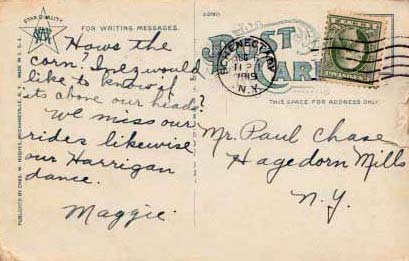 STAR QUALITY
FOR WRITING MESSAGES.
Hows the
corn? Inez would
like to know if
its above our heads?
We miss our
rides likewise
our Harrigan
dance.
Maggie.
PUBLISHED BY CHAS. W. HUGHES, MECHANICVILLE, N. Y. MADE IN U. S. A.
POST CARD
SCHENECTADY
11 P
1919
N.Y.
THIS SPACE FOR ADDRESS ONLY.
Mr. Paul Chase
Hagedorn Mills
N. Y.